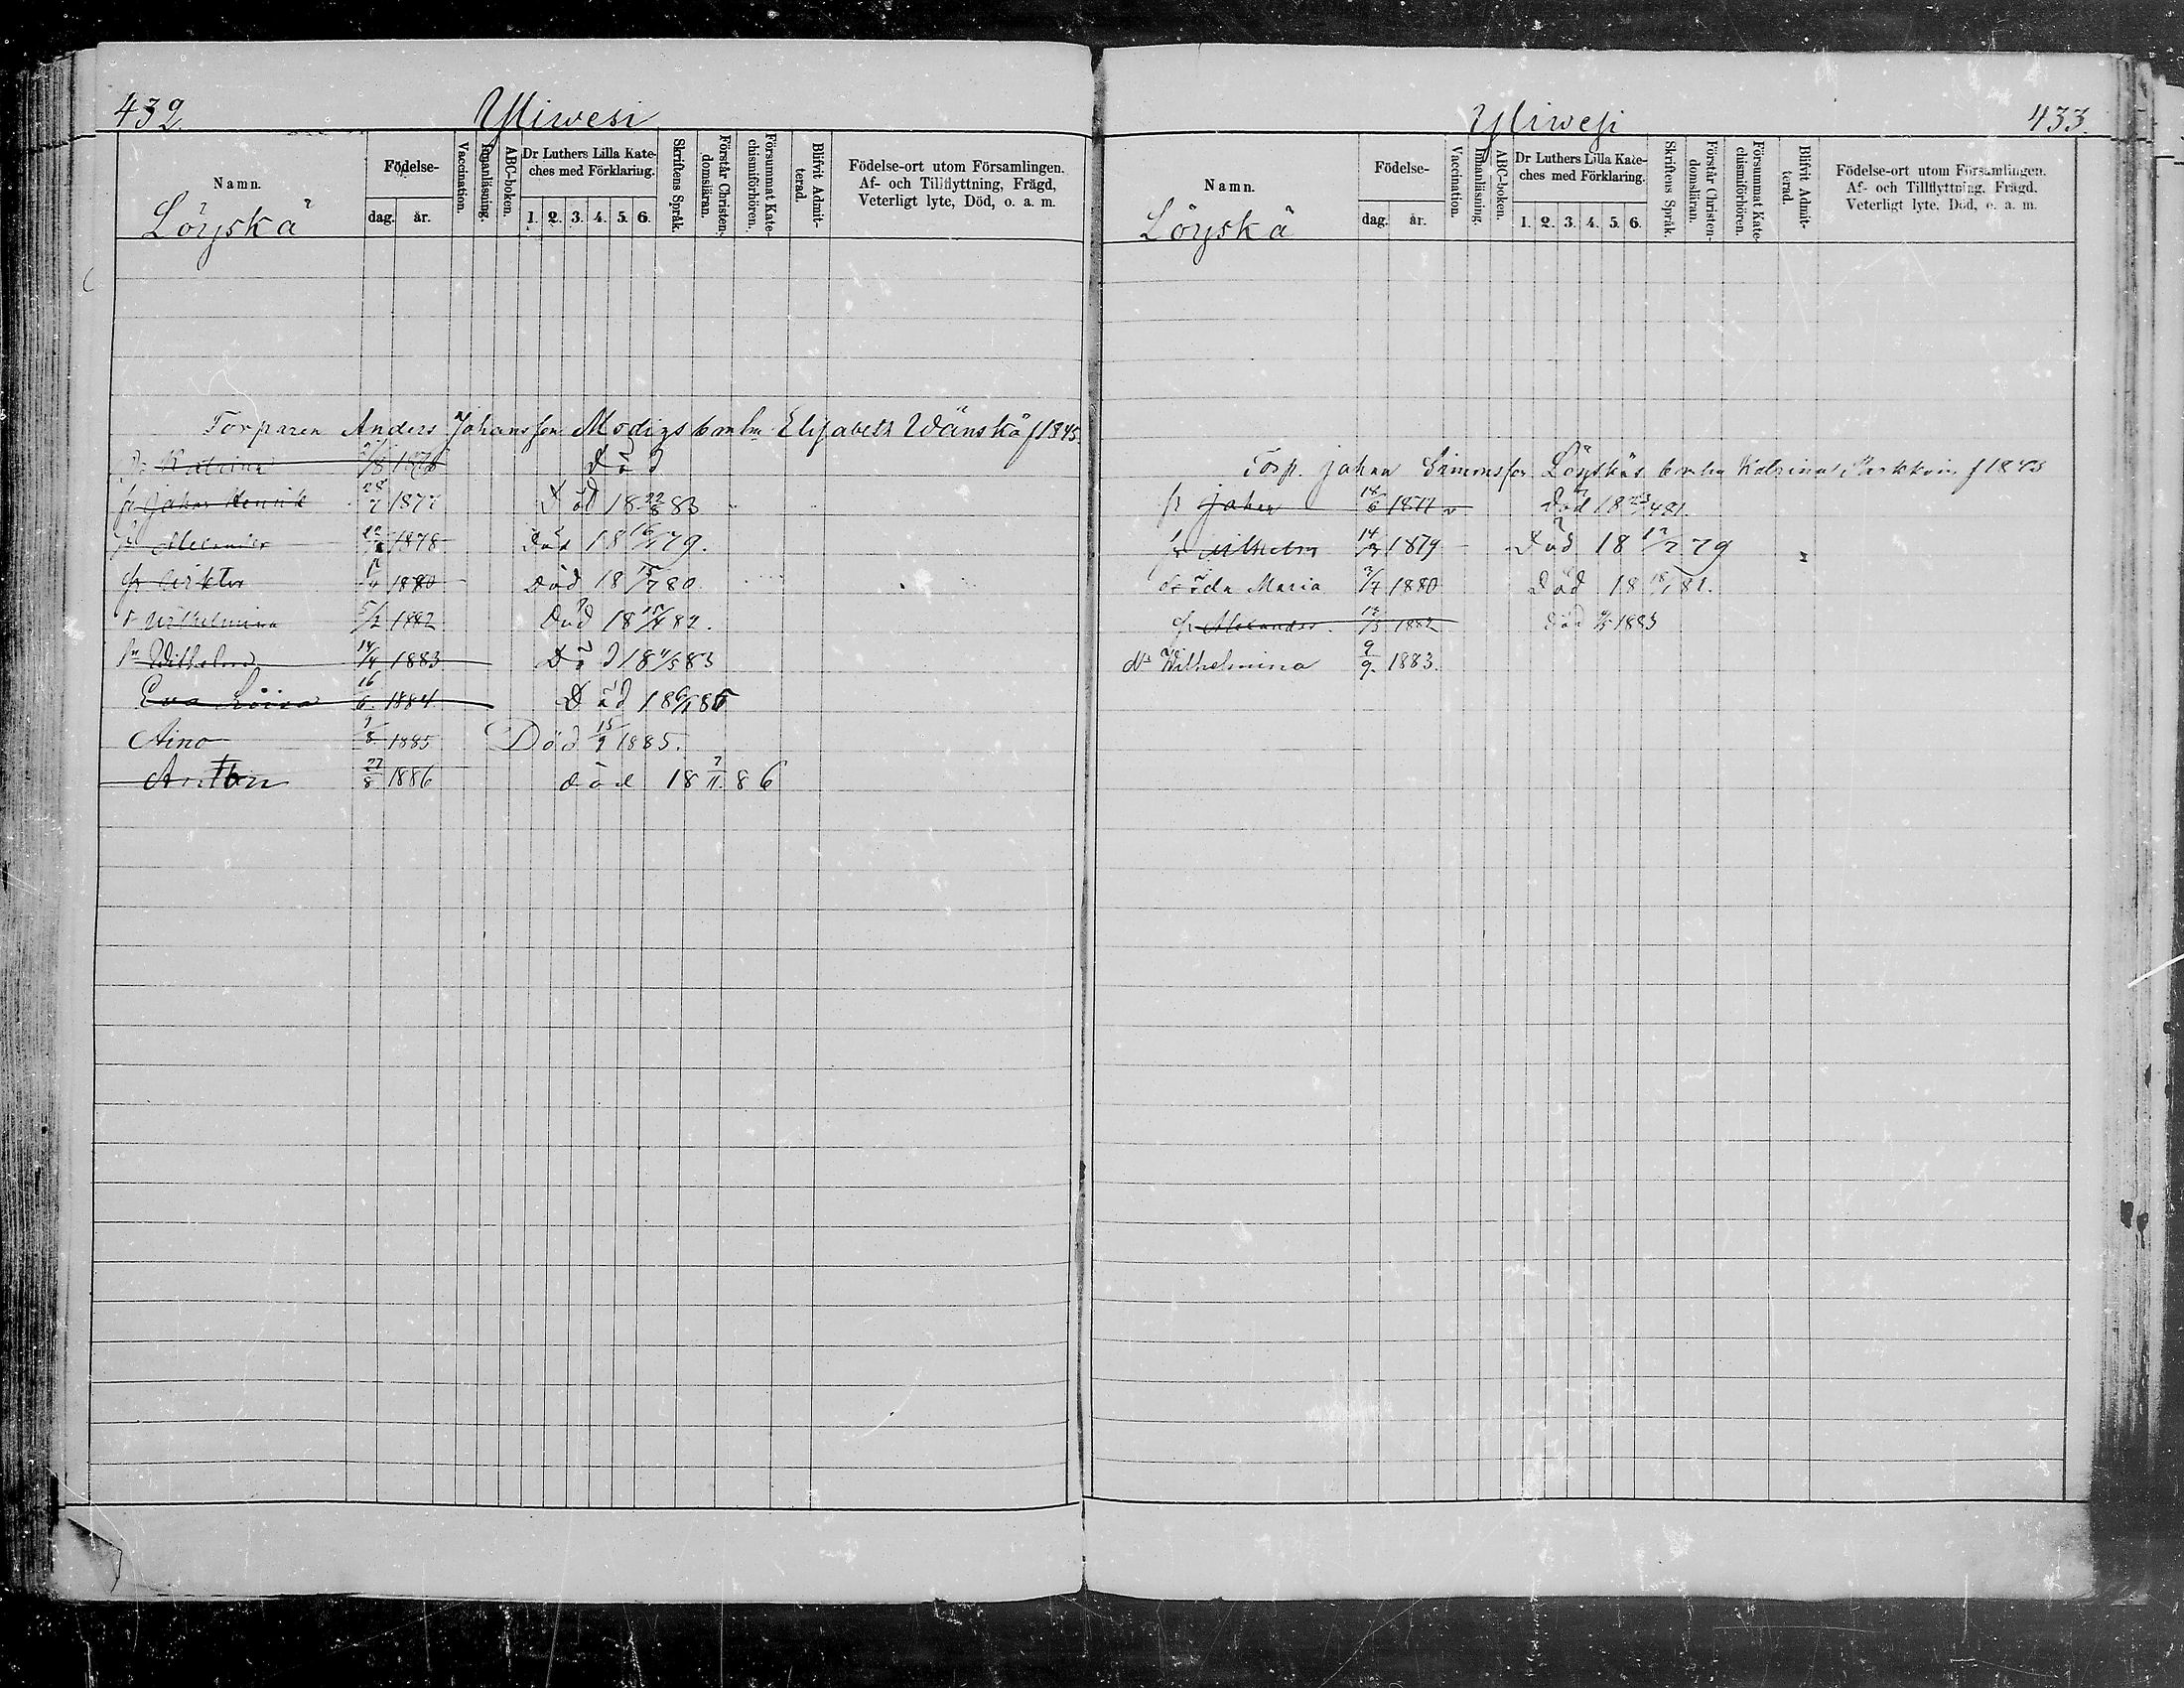 432.
Yliwesi
Namn.
Födelse-
dag. år.
Vaccination.
Innanläsning.
ABC-boken.
Dr Luthers Lilla Kate-
ches med Förklaring.
1. 2. 3. 4. 5. 6.
Skriftens Språk.
Förstår Christen-
domsläran.
Försummat Kate-
chismiförhören.
Blifvit Admit-
terad.
Födelse-ort utom Församlingen.
Af- och Tillflyttning, Frägd,
Veterligt lyte, Död, o. a. m.
Löyskä
Torparen Anders Johansson Modigs b m hu Elisabeth Wänskä f 1845.
Katrina Död
Johan Henrik 28/7 1877 Död 18 22/8 83
1878 Död 18 79.
1880 Död 18 15/7 80
Wilhelmina 5/2 1882 Död 18 82.
Wilhelm 14/4 1883 Död 18 83
Eva Lovisa 16/6 1884 Död 18 85
Aino 1885 Död 15/9 1885.
Anton 27/8 1886 död 18 7/11 86
Yliwesi
433.
Namn.
Födelse-
dag. år.
Vaccination.
Innanläsning.
ABC-boken.
Dr Luthers Lilla Kate-
ches med Förklaring.
1. 2. 3. 4. 5. 6.
Skriftens Språk.
Förstår Christen-
domsläran.
Försummat Kate-
chismiförhören.
Blifvit Admit-
terad.
Födelse-ort utom Församlingen.
Af- och Tillflyttning, Frägd.
Veterligt lyte, Död, o. a. m.
Löyskä
Torp. Johan Simonsson Löyskäs b m hu Katrina f 1843
Johan Död 18 81.
Wilhelm 1879 Död 18 79
Ida Maria 1880 Död 18 81.
Alexander 1882 Död 1883
Wilhelmina 9/9. 1883.